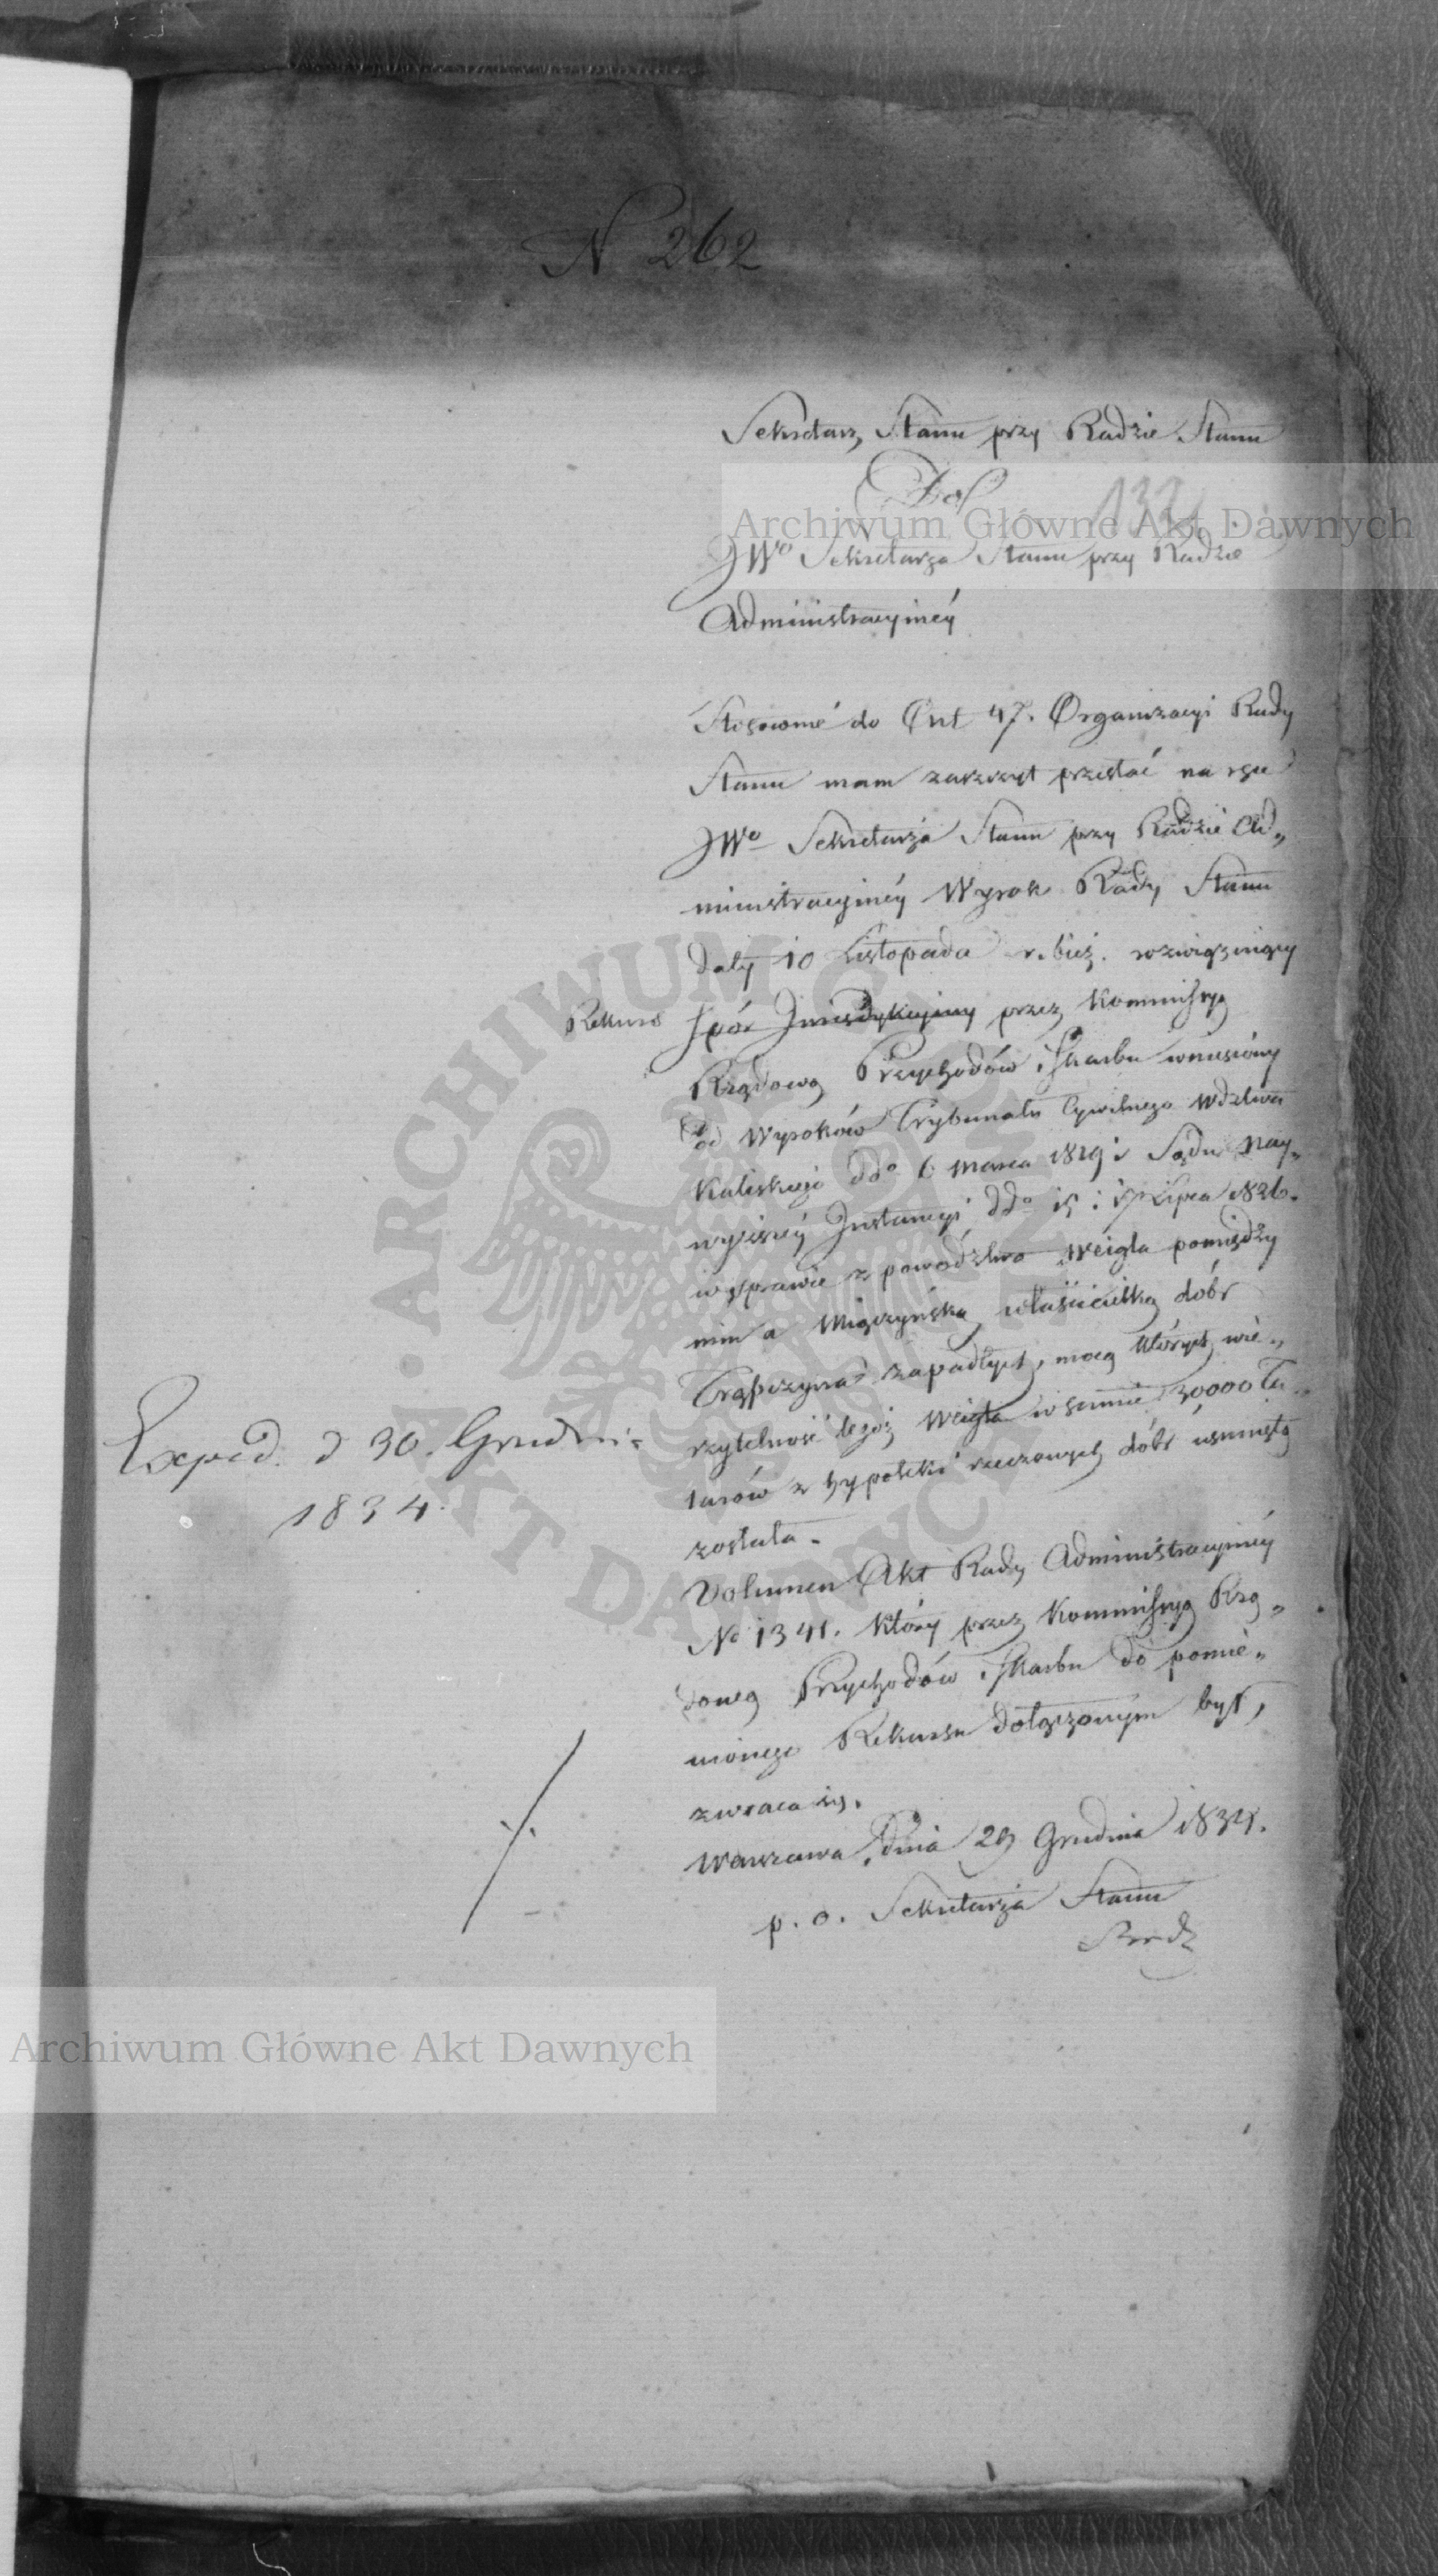 N 262
Sekretarz Stanu przy Radzie Stanu
Do
132
JWo Sekretarza Stanu przy Radzie
Administracyinéy
Stosownié do Art 47. Organizacyi Rady
Stanu mam zaszczyt przesłać na ręce
JWo Sekretarza Stanu przy Radzie Ad„
ministracyinéy Wyrok Rady Stanu
daty 10 Listopada r. bież. rozwiązuiący
Rekurs
spór Jurisdykcyiny przez Kommissyą
Rządową Przychodów i Skarbu wniesiony
od Wyroków Trybunału Cywilnego Wdztwa
Kaliskiego ddo 6 Marca 1819 i Sądu Nay„
wyższéy Instancyi ddo 15 i 17 Lipca 1826.
w sprawie z powództwa Weigla pomiędzy
nim a Miączyńską właścicielką dóbr
zapadłych, mocą których wie„
rzytelność tegoż Weigla w summie 30000 Ta„
larów z hypoteki rzeczonych dóbr usuniętą
została.
Volumen Akt Rady Administracyinéy
No 1341. który przez Kommissyą Rzą„
dową Przychodów i Skarbu do pomie„
nionego Rekursu dołączonym był,
zwraca się.
Warszawa dnia 29 Grudnia 1834.
p. o. Sekretarza Stanu
Exped. d 30. Grudnia
1834.
Archiwum Główne Akt Dawnych
Archiwum Główne Akt Dawnych
ARCHIWUM GŁÓWNE AKT DAWNYCH